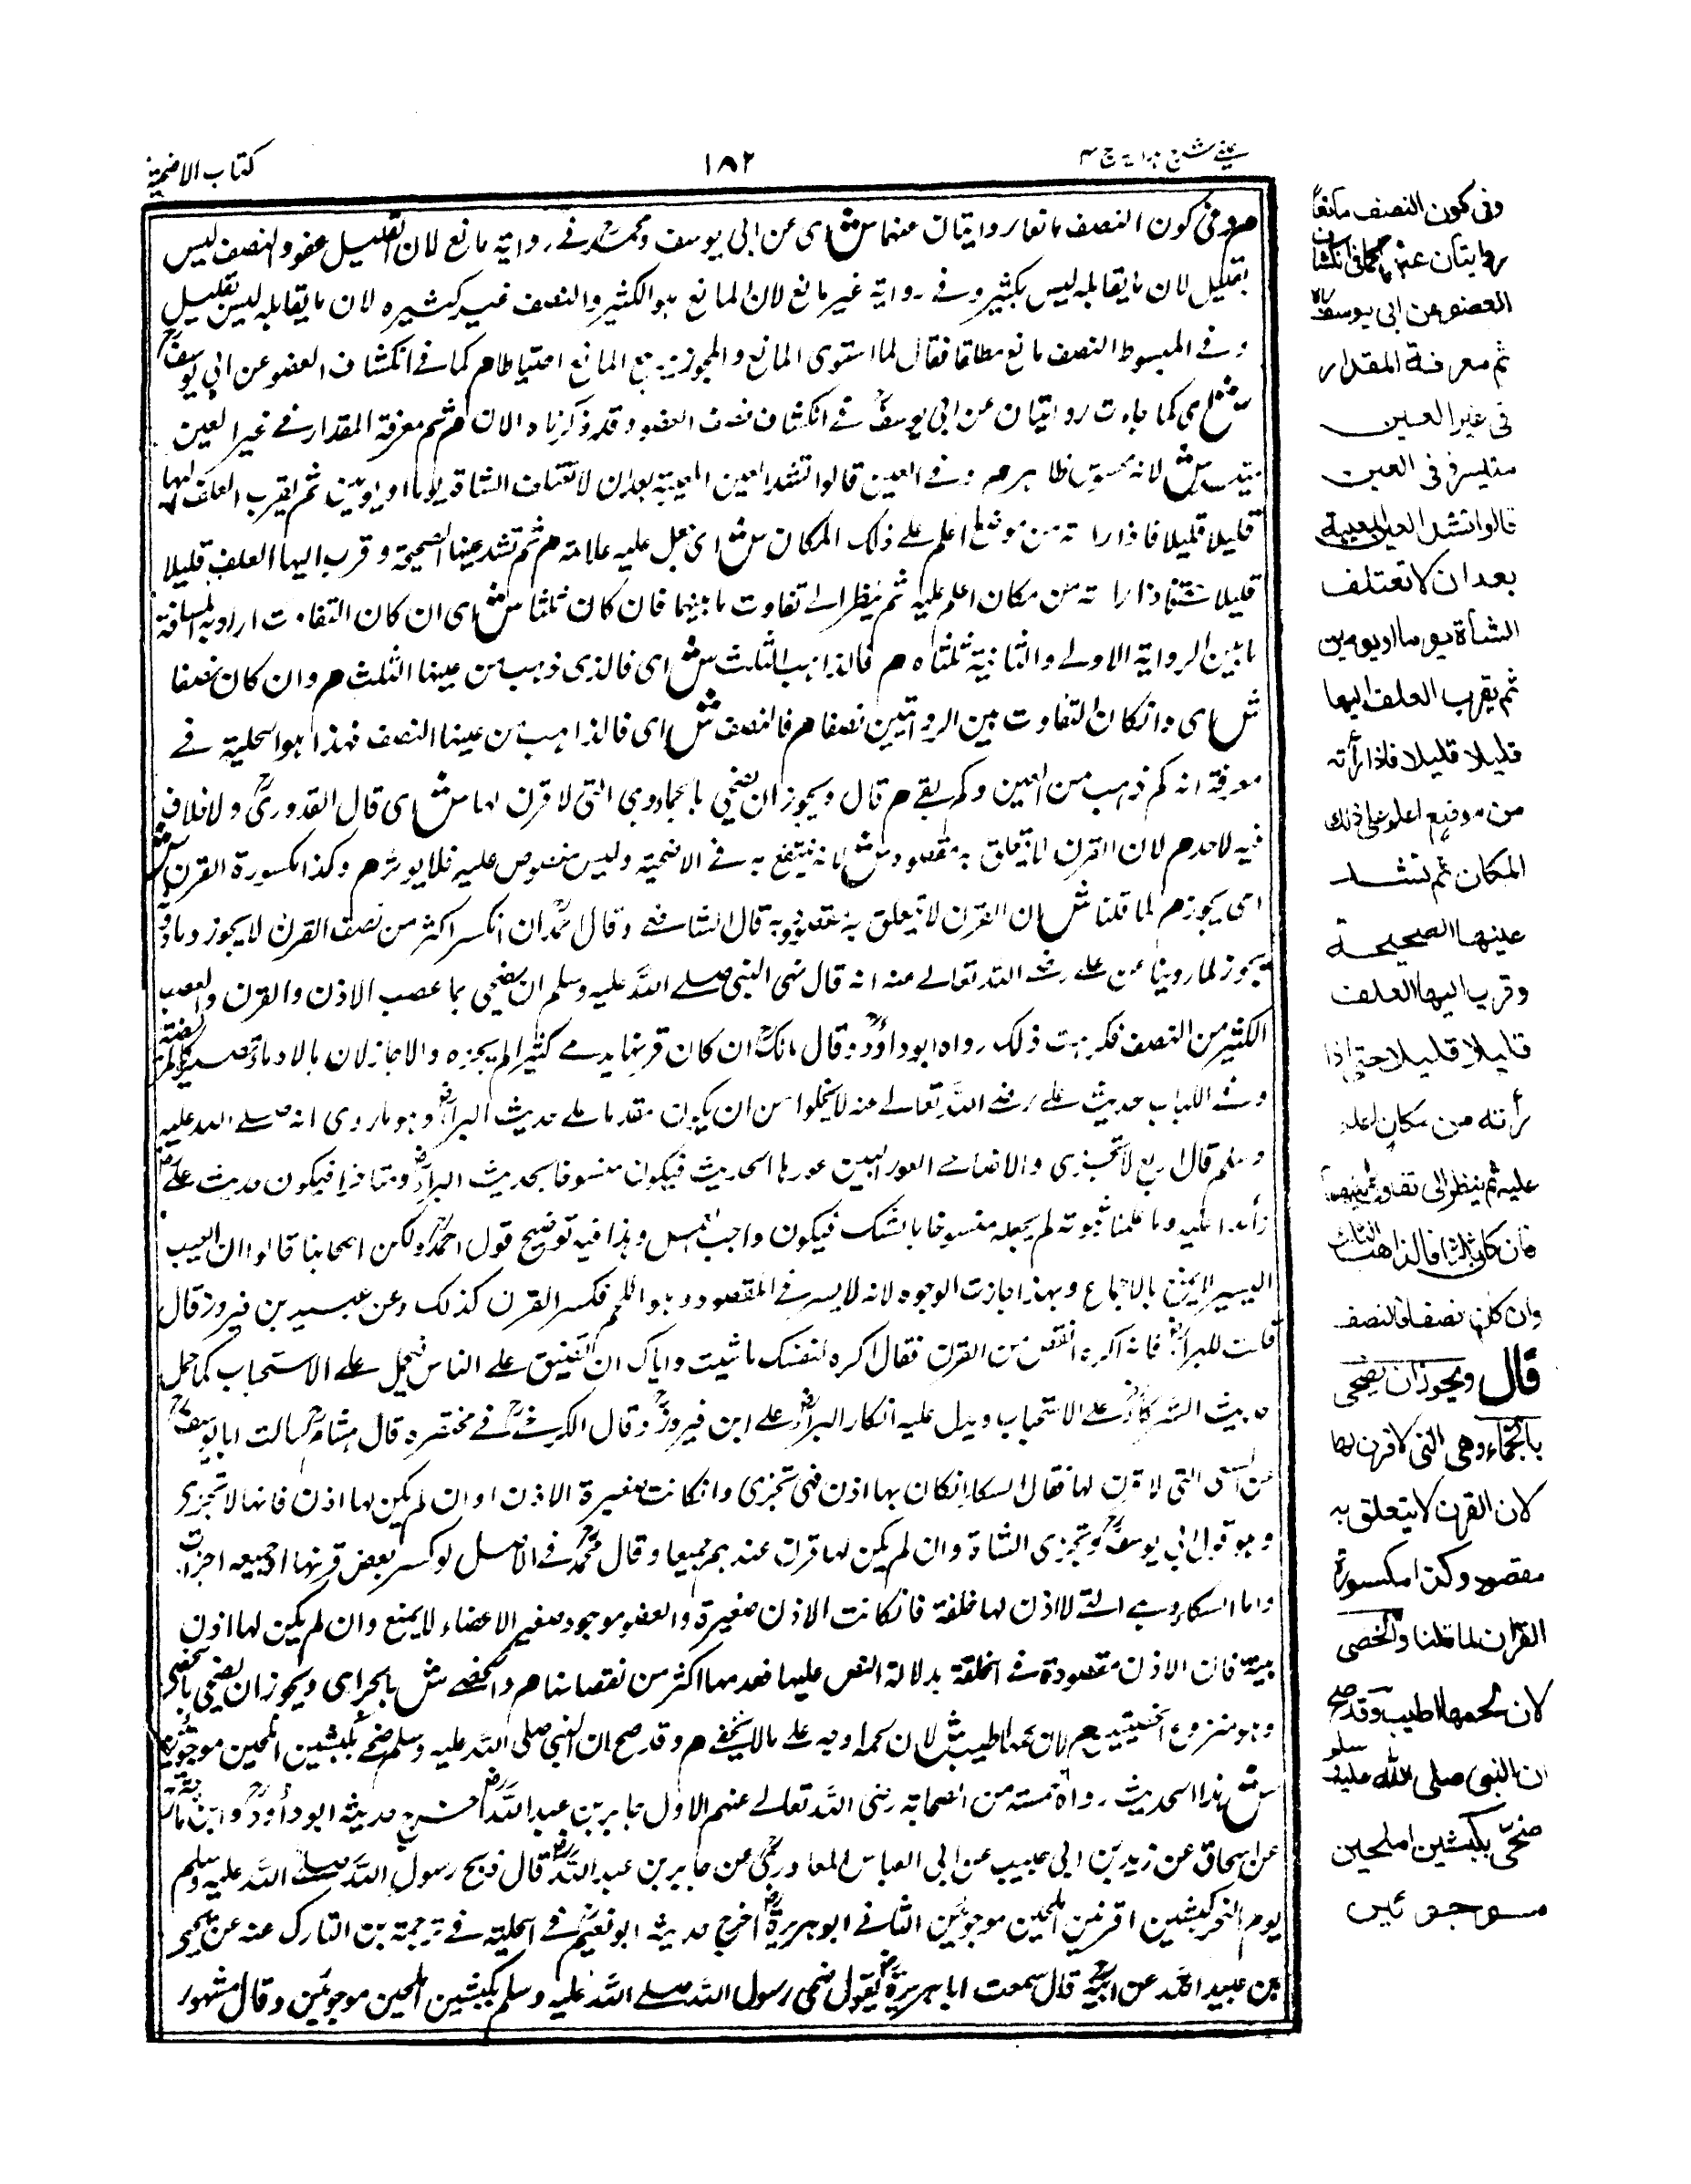 عيني شرح هداية ج ٤
١٨٢
كتاب الاضحية
م وفي كون النصف مانعا روايتان عنهما ش اى عن ابى يوسف ومحمد في رواية مانع لان القليل عفو والنصف ليس
بقليل لان ما يقابله ليس بكثير وفى رواية غير مانع لان المانع هو الكثير والنصف غير كثيره لان ما يقابله ليس بقليل
وفى المبسوط النصف مانع مطلقا فقال لما استوى المانع والمجوز يرجع المانع احتياطا م كما فى انكشاف العضو عن ابى يوسف
ش اى كما جاءت روايتان عن ابى يوسف فى انكشاف نصف العضو وقد ذكرناه الان م ثم معرفة المقدار فى غير العين
متيسر ش لانه محسوس ظاهر م وفى العين قالوا تشد العين المعيبة بعد ان لا تعتلف الشاة يوما او يومين ثم يقرب العلف اليها
قليلا قليلا فاذا راته من موضع اعلم على ذلك المكان ش اى جعل عليه علامة م ثم تشد عينها الصحيحة وقرب اليها العلف قليلا
قليلا حتى اذا راته من مكان اعلم عليه ثم ينظر الى تفاوت ما بينهما فان كان ثلثا ش اى ان كان التفاوت اراد به المسافة
ما بين الرواية الاولى والثانية ثلثا م فالذاهب الثلث ش اى فالذى ذهب من عينها الثلث م وان كان نصفا
ش اى وانكان التفاوت بين الروايتين نصفا م فالنصف ش اى فالذاهب من عينها النصف فهذا هو الحلية فى
معرفة انه كم ذهب من العين وكم بقى م قال ويجوز ان يضحى بالجماء وهى التى لا قرن لها ش اى قال القدورى ولا خلاف
فيه لاحد م لان القرن لا يتعلق به مقصود ش لانه ينتفع به فى الاضحية وليس منصوص عليه فلا يوثر م وكذا مكسورة القرن ش
اى يجوز م لما قلنا ش ان القرن لا يتعلق به مقصود وبه قال الشافعى وقال احمد ان انكسر اكثر من نصف القرن لا يجوز ومادونه
يجوز لما روينا عن على رضى الله تعالى عنه انه قال نهى النبى صلى الله عليه وسلم ان يضحى بما عضب الاذن والقرن والعضب
الكثير من النصف فكرهت ذلك رواه ابو داود وقال مالك ان كان قرنها يدمى كثيرا لم يجزه والا جاز لان بالادماء تصير كالمريضة
وفى اللباب حديث على رضى الله تعالى عنه لا يخلوا من ان يكون مقدما على حديث البراء وهو ما روى انه صلى الله عليه
وسلم قال اربع لا تجزى والاضاحى العور البين عورها الحديث فيكون منسوخا بحديث البراء ومتاخرا فيكون حديث على
زائدا عليه وما علمنا ثبوته لم يجعله منسوخا بالشك فيكون واجب العمل وهذا فيه توضيح قول احمد ولكن اصحابنا قالوا ان العيب
اليسير لا يمنع بالاجماع وبهذا جازت الوجوه لانه لا يسير فى المقصود وهو اللحم فكسر القرن كذلك وعن عبيد بن فيروز قال
قلت للبراء فانه اكره النقص من القرن فقال اكره لنفسك ما شئت واياك ان تضيق على الناس فيحمل على الاستحباب كما حمل
حديث الشرقاء على الاستحباب ويدل عليه انكار البراء على ابن فيروز وقال الكرخى فى مختصره قال هشام سالت ابا يوسف
عن السكاء التى لا قرن لها فقال السكا انكان بها اذن فهى تجزى وانكانت صغيرة الاذن او ان لم يكن لها اذن فانها لا تجزى
وهو قول ابى يوسف وتجزى الشاة وان لم يكن لها قرن عندهم جميعا وقال محمد فى الاصل لو كسر بعض قرنها او جميعه اجزات
واما السكاء وهى التى لا اذن لها خلقة فانكانت الاذن صغيرة والعضو موجود صغير الاعضاء لا يمنع وان لم يكن لها اذن
بينة فان الاذن مقصودة فى الخلقة بدلالة النص عليها فعدمها اكثر من نقصانها م والخصى ش بالجر اى ويجوز ان يضحى بالخصى
وهو منزوع الخصيتين م لان لحمها اطيب ش لان لحمه اوجه على ما لا يخفى م وقد صح ان النبى صلى الله عليه وسلم ضحى بكبشين املحين موجوئين
ش هذا الحديث رواه خمسة من الصحابة رضى الله تعالى عنهم الاول جابر بن عبد الله اخرج حديثه ابو داود وابن ماجة
عن اسحاق عن زيد بن ابى حبيب عن ابى العباس المعاورى عن جابر بن عبد الله قال ذبح رسول الله صلى الله عليه وسلم
يوم النحر كبشين اقرنين املحين موجوئين الثانى ابو هريرة اخرج حديثه ابو نعيم فى الحلية فى ترجمة بن المبارك عنه عن يحيى
بن عبيد الله عن ابيه قال سمعت ابا هريرة يقول ضحى رسول الله صلى الله عليه وسلم بكبشين املحين موجوئين وقال مشهور
وفى كون النصف مانعا
روايتان عنهما كما فى انكشاف
العضو عن ابى يوسف
ثم معرفة المقدار
فى غير العين
متيسر وفى العين
قالوا تشد العين المعيبة
بعد ان لا تعتلف
الشاة يوما او يومين
ثم يقرب العلف اليها
قليلا قليلا فاذا رأته
من موضع اعلم على ذلك
المكان ثم تشد
عينها الصحيحة
وقرب اليها العلف
قليلا قليلا حتى اذا
رأته من مكان اعلم
عليه ثم ينظر الى تفاوت ما بينهما
فان كان ثلثا فالذاهب الثلث
وان كان نصفا فالنصف
قال ويجوز ان يضحى
بالجماء وهى التى لا قرن لها
لان القرن لا يتعلق به
مقصود وكذا مكسورة
القرن لما قلنا والخصى
لان لحمها اطيب وقد صح
ان النبى صلى الله عليه وسلم
ضحى بكبشين املحين
موجوئين